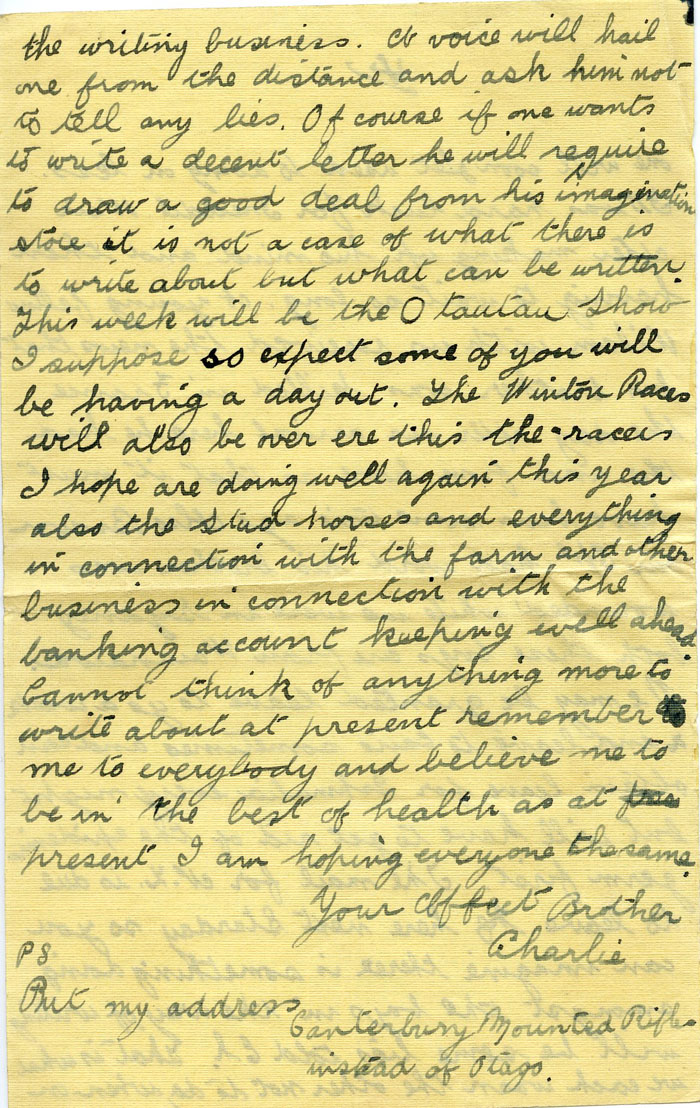 the writing business. A voice will hail
one from the distance and ask him not
to tell any lies. Of course if one wants
to write a decent letter he will require
to draw a good deal from his imagination
store it is not a case of what there is
to write about but what can be written.
This week will be the Otautau Show
I suppose so expect some of you will
be having a day out. The Winton Races
will also be over ere this the racers
I hope are doing well again this year
also the stud horses and everything
in connection with the farm and other
business in connection with the
banking account keeping well ahead.
Cannot think of anything more to
write about at present remember
me to everybody and believe me to
be in the best of health as at
present I am hoping everyone the same.
Your Affect Brother
Charlie
PS
Put my address
Canterbury Mounted Rifles
instead of Otago.